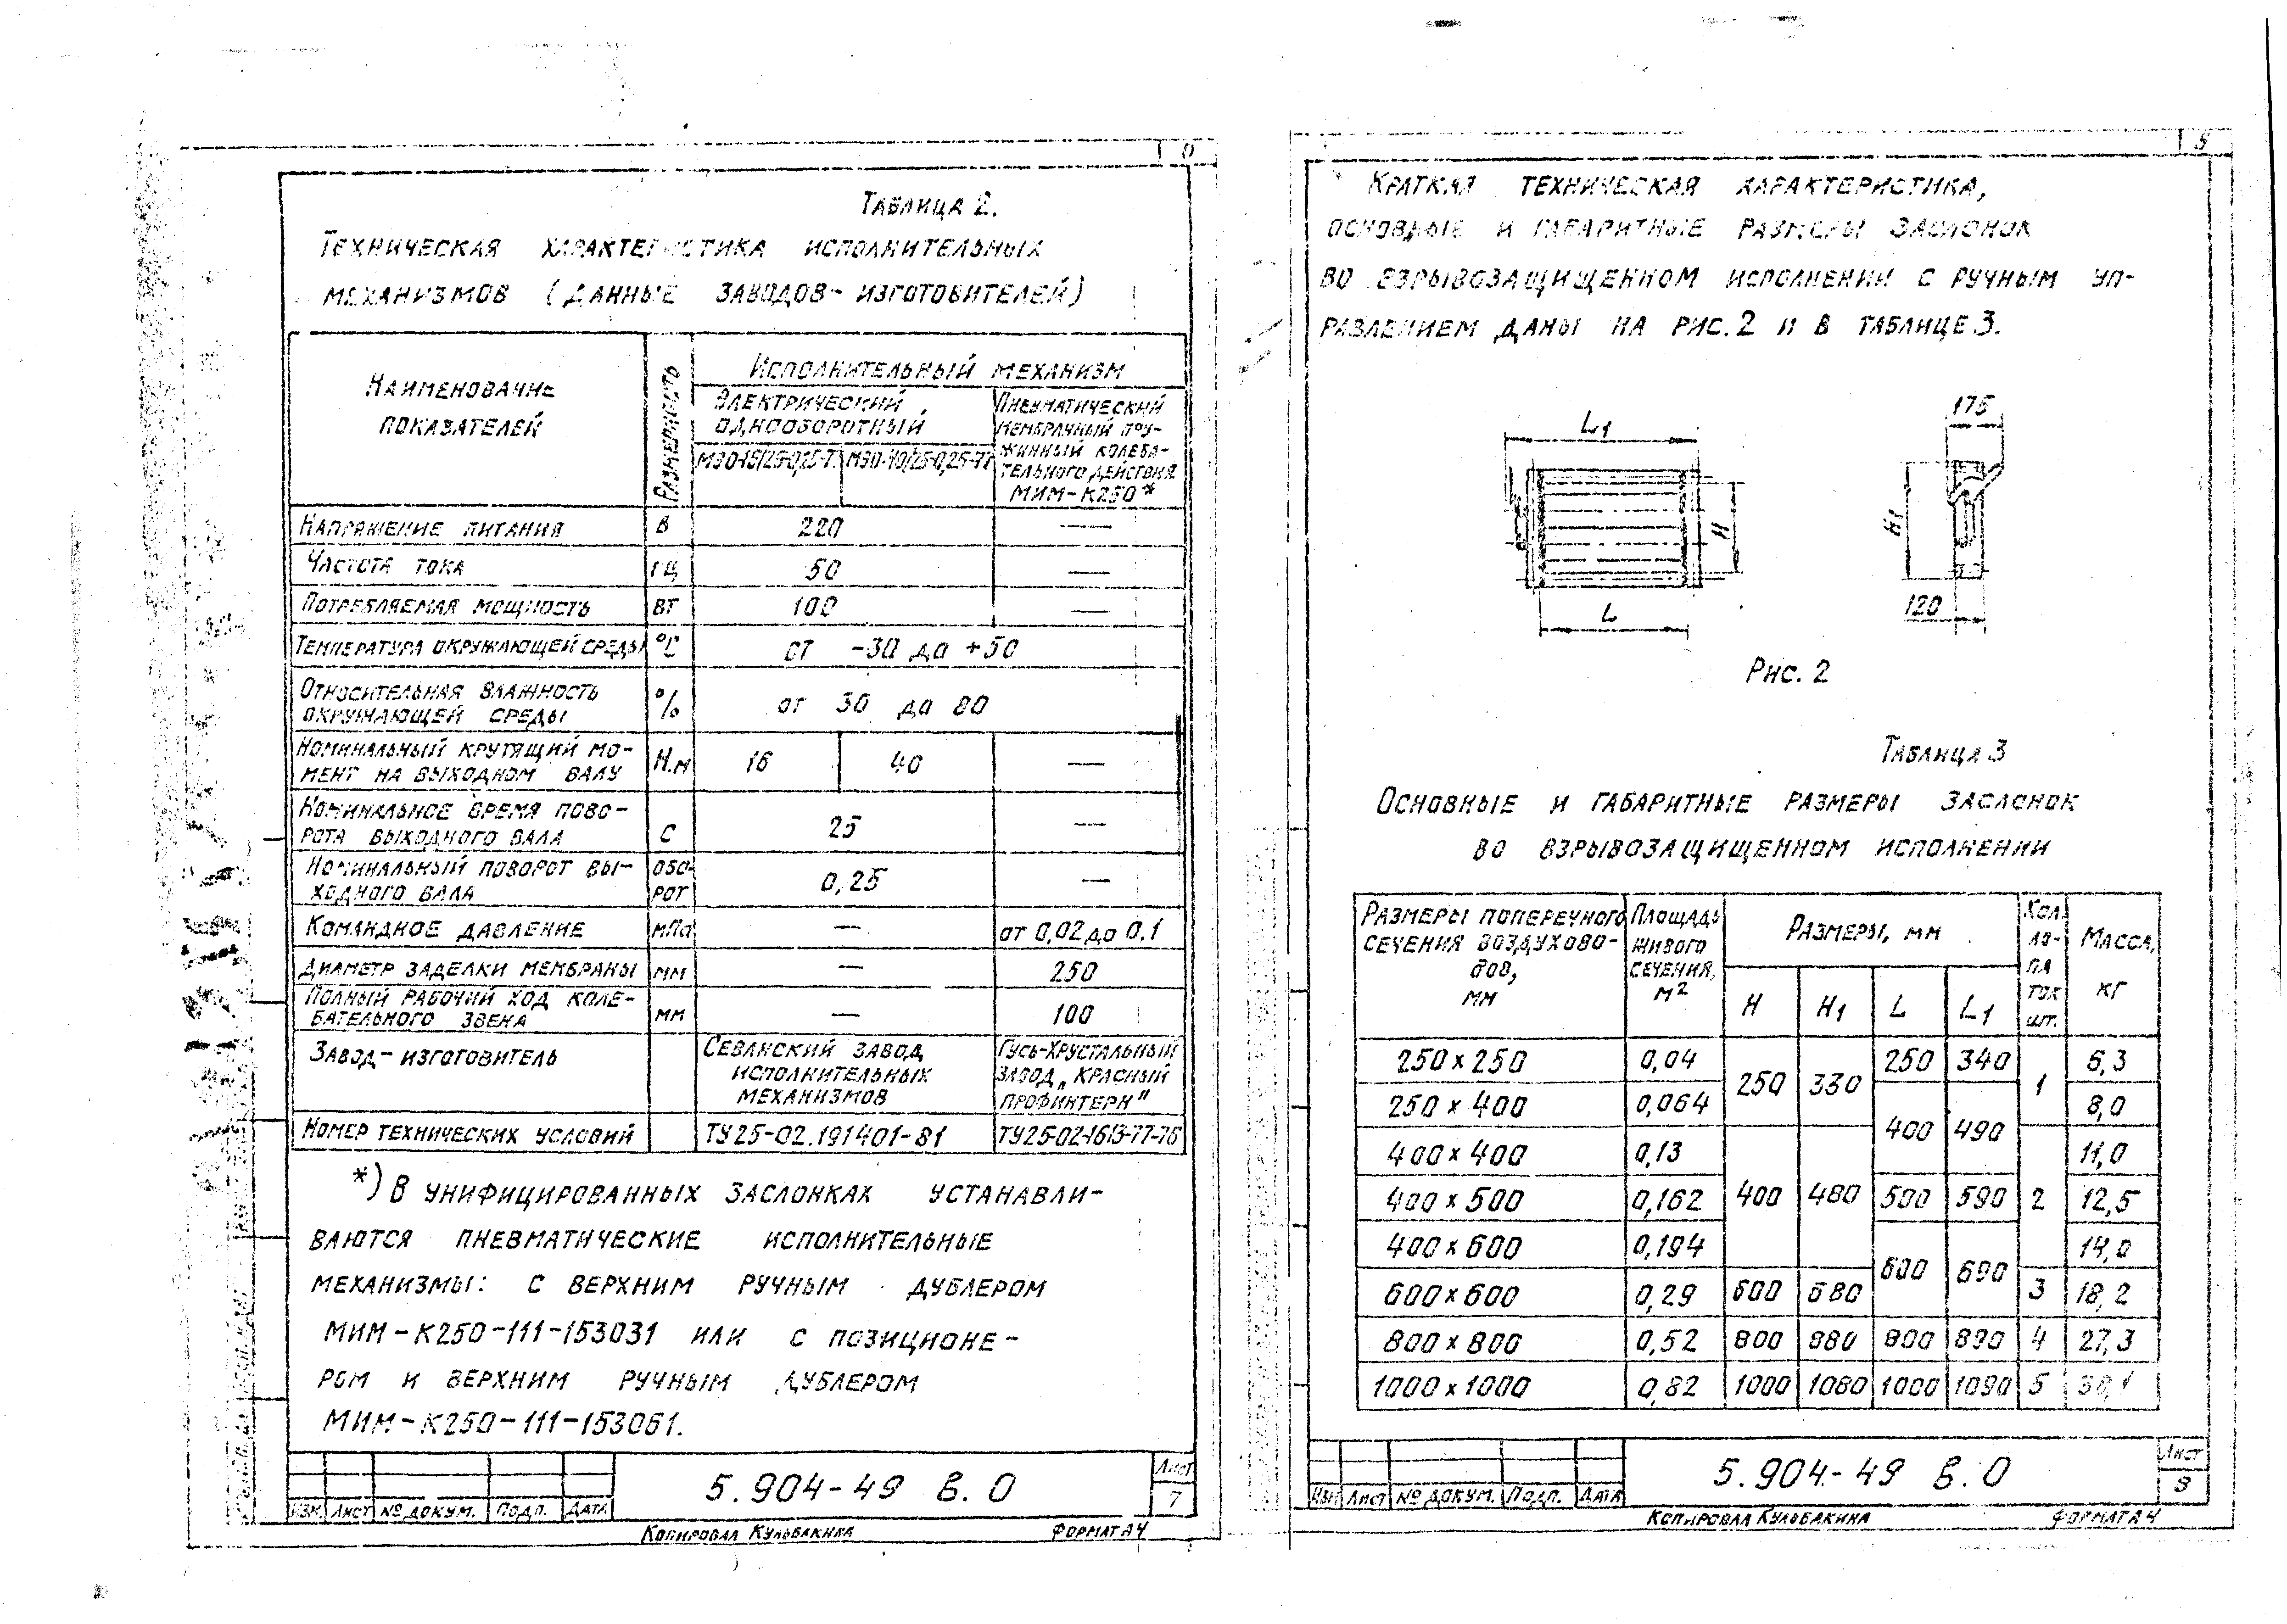 Таблица 2.
Техническая характеристика исполнительных
механизмов (данные заводов-изготовителей)
Наименование
показателей
Размерность
Исполнительный механизм
Электрический
однооборотный
МЭО-16/25-0,25-77
МЭО-40/25-0,25-77
Пневматический
мембранный пру-
жинный колеба-
тельного действия
МИМ-К250*
Напряжение питания В 220 —
Частота тока Гц 50 —
Потребляемая мощность Вт 100 —
Температура окружающей среды °С от -30 до +50
Относительная влажность
окружающей среды % от 30 до 80
Номинальный крутящий мо-
мент на выходном валу Н.м 16 40 —
Номинальное время пово-
рота выходного вала с 25 —
Номинальный поворот вы-
ходного вала обо-
рот 0,25 —
Командное давление мПа — от 0,02 до 0,1
Диаметр заделки мембраны мм — 250
Полный рабочий ход коле-
бательного звена мм — 100
Завод-изготовитель
Севанский завод
исполнительных
механизмов
Гусь-Хрустальный
завод „Красный
Профинтерн"
Номер технических условий ТУ25-02.191401-81 ТУ25-02-1613-77-76
*) В унифицированных заслонках устанавли-
ваются пневматические исполнительные
механизмы: с верхним ручным дублером
МИМ-К250-111-153031 или с позиционе-
ром и верхним ручным дублером
МИМ-К250-111-153061.
5.904-49 В.0
Лист
7
Изм. Лист № докум. Подп. Дата
Копировал Кульбакина Формат А4
9
Краткая техническая характеристика,
основные и габаритные размеры заслонок
во взрывозащищенном исполнении с ручным уп-
равлением даны на рис. 2 и в таблице 3.
L1
H
L
175
H1
120
Рис. 2
Таблица 3
Основные и габаритные размеры заслонок
во взрывозащищенном исполнении
Размеры поперечного
сечения воздухово-
дов,
мм
Площадь
живого
сечения,
м2
Размеры, мм
H H1 L L1
Кол.
ло-
па
ток
шт.
Масса,
кг
250 x 250 0,04 250 330 250 340 1 6,3
250 x 400 0,064 400 490 8,0
400 x 400 0,13 400 480 2 11,0
400 x 500 0,162 500 590 12,5
400 x 600 0,194 600 690 14,0
600 x 600 0,29 600 680 3 18,2
800 x 800 0,52 800 880 800 890 4 27,3
1000 x 1000 0,82 1000 1080 1000 1090 5
5.904-49 В.0
Лист
8
Изм Лист № докум. Подп. Дата
Копировал Кульбакина Формат А4